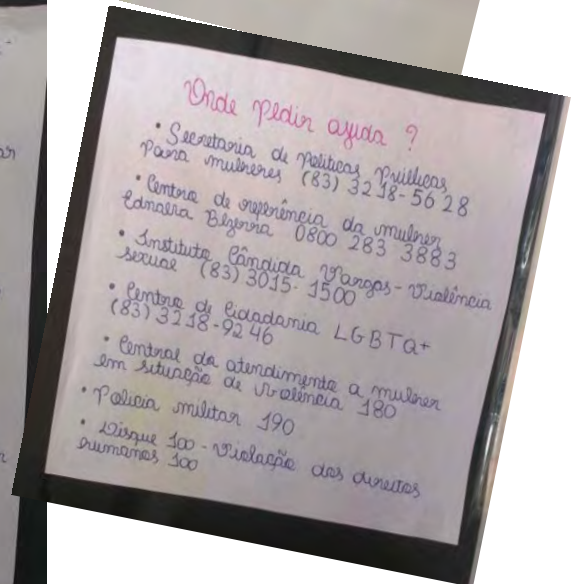 Onde pedir ajuda ?
• Secretaria de Políticas Públicas
para mulheres (83) 3218-5628
• Centro de referência da mulher
Ednalva Bezerra 0800 283 3883
• Instituto Cândida Vargas - Violência
sexual (83) 3015-1500
• Centro de Cidadania LGBTQ+
(83) 3218-9246
• Central de atendimento a mulher
em situação de violência 180
• Polícia militar 190
• Disque 100 - Violação dos direitos
humanos 100